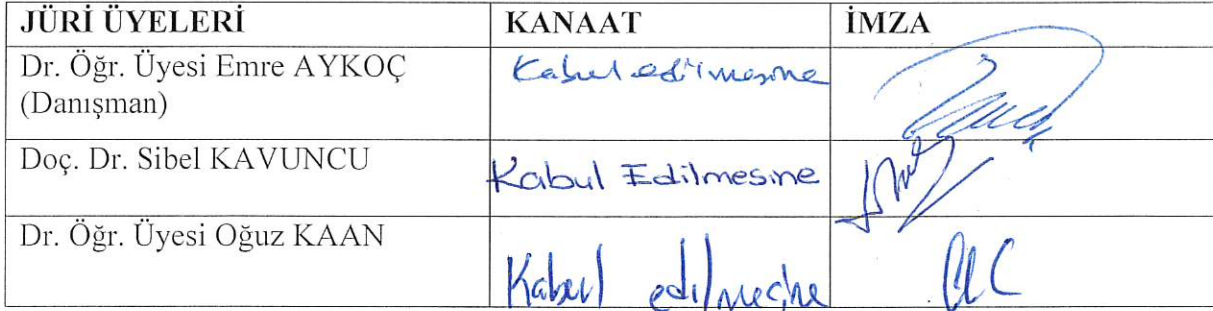 JÜRİ ÜYELERİ KANAAT İMZA
Dr. Öğr. Üyesi Emre AYKOÇ Kabul edilmesine
(Danışman)
Doç. Dr. Sibel KAVUNCU Kabul Edilmesine
Dr. Öğr. Üyesi Oğuz KAAN
Kabul edilmesine